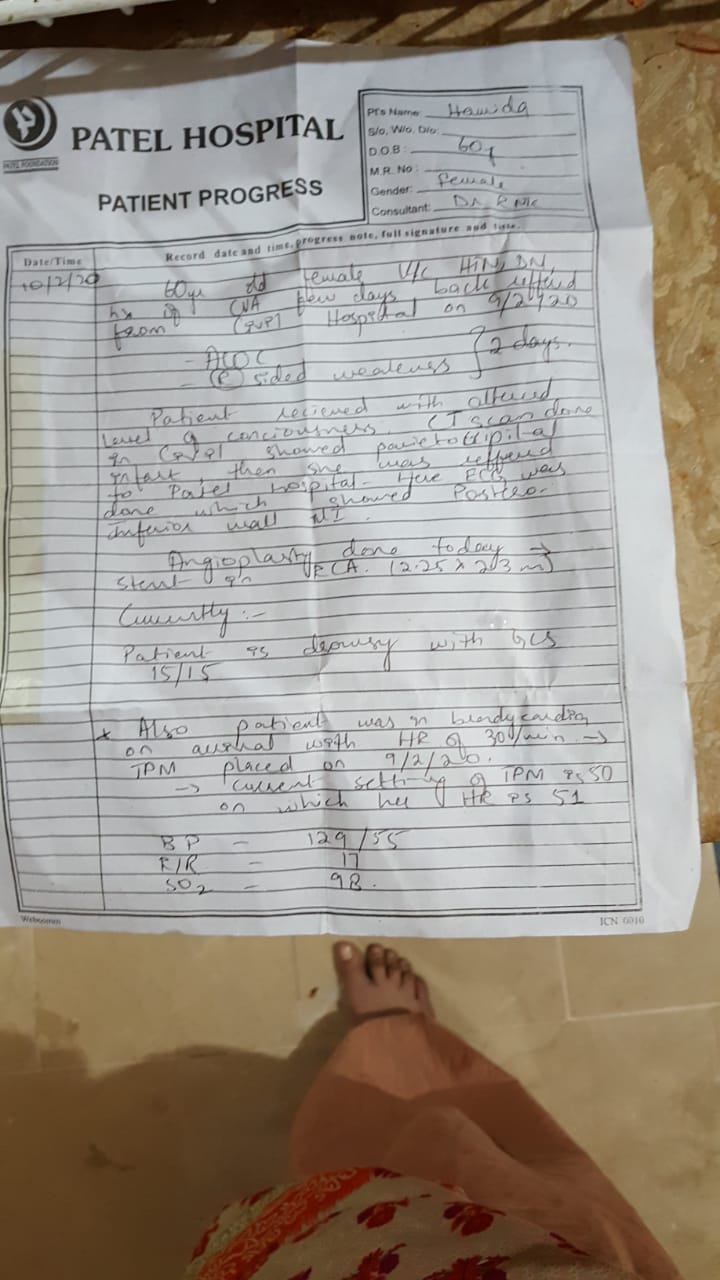 PATEL FOUNDATION
PATEL HOSPITAL
PATIENT PROGRESS
Pt's Name: Hamida
S/o, W/o, D/o:
D.O.B: 60y
M.R. No:
Gender: Female
Consultant: Dr.
Date/Time
Record date and time, progress note, full signature and time.
10/2/20
60yr old female k/c HTN, DM,
hx of CVA few days back reffered
from Hospital on 9/2/20
- ALOC
- (R) sided weakness } 2 days.
Patient recieved with altered
Level of conciousness. CT scan done
in showed parietoccipital
infarct, then she was reffered
to Patel hospital- Here ECG was
done which showed Postero-
inferior wall MI.
Angioplasty done today →
Stent in RCA. (2.25 x 23 m)
Currently :-
Patient is drowsy with GCS
15/15
* Also patient was in bradycardia
on arrival with HR of 30/min →
TPM placed on 9/2/20.
→ current setting of TPM is 50
on which her HR is 51
BP - 129/55
R/R - 17
SO2 - 98.
Webcomm
ICN 0010